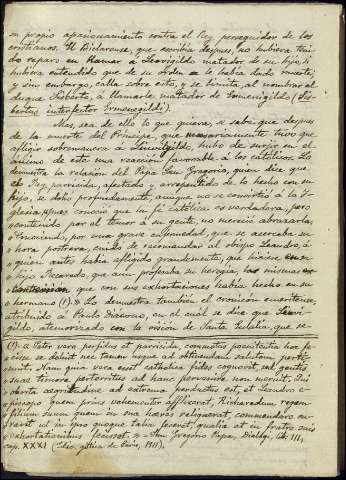 su propio apasionamiento contra el Rey perseguidor de los
cristianos. El Biclarense, que escribía despues, no hubiera teni-
do reparo en llamar a Leovigildo matador de su hijo, si
hubiera entendido que de su orden se le había dado muerte;
y sin embargo, calla sobre esto, y se limita, al nombrar al
duque Sisberto, á llamarle matador de Ermenegildo (Sis-
bertus interfector Ermenegildi).
Mas, sea de ello lo que quiera, si sabe que despues
de la muerte del Príncipe, que necesariamente tuvo que
afligir sobremanera á Leovigildo, hubo de surgir en el
ánimo de este una reacción favorable á los católicos. Lo
demuestra la relación del Papa San Gregorio, quien dice que
el Rey, parricida, afectado y arrepentido de lo hecho con su
hijo, se dolió profundamente, aunque no se convirtió á la I-
glesia, pues conoció que la fé católica era verdadera, pero
contenido por el temor á su gente, no mereció abrazarla.
Conociendo, por una grave enfermedad, que se acercaba su
hora postrera, cuidó de recomendar al obispo Leandro á
quien antes había afligido grandemente, que hiciese con su
hijo Recaredo, que aun profesaba su heregía, las mismas
que con sus exhortaciones había hecho en su
hermano (1).» Lo demuestra también el cronicón emeritense,
atribuido á Paulo Diácono, en el cual se dice que Leovi-
gildo, atemorizado con la visión de Santa Eulalia, que se
(1) «Pater vero perfidus et parricida, commotus poenitentia hoc fe-
cisse se doluit nec tamen usque ad obtinendam salutem perti-
nuit. Nam quia vera esset catholica fides cognovit, sed gentis
suae timore perterritus ad hanc pervenire non meruit. Qui
oborta aegritudine ad extrema perductus est, et Leandro e-
piscopo quem prius vehementer afflixerat, Richaredum regem
filium suum quem in sua haeresi reliquerat, commendare cu-
ravit ut in ipso quoque talia faceret, qualia et in fratre suis
exhortationibus fecisset.» - San Gregorio Papa, Dialog. lib. III,
cap. XXXI (Edic. gótica de París, 1511).